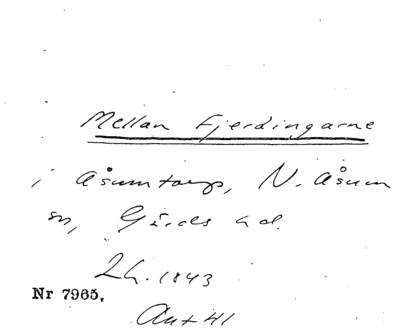 Mellan Fjerdingarne
i Åsumtorp, N. Åsum
sn, Gärds hd.
Lh. 1843
Nr 7965.
Aut 41